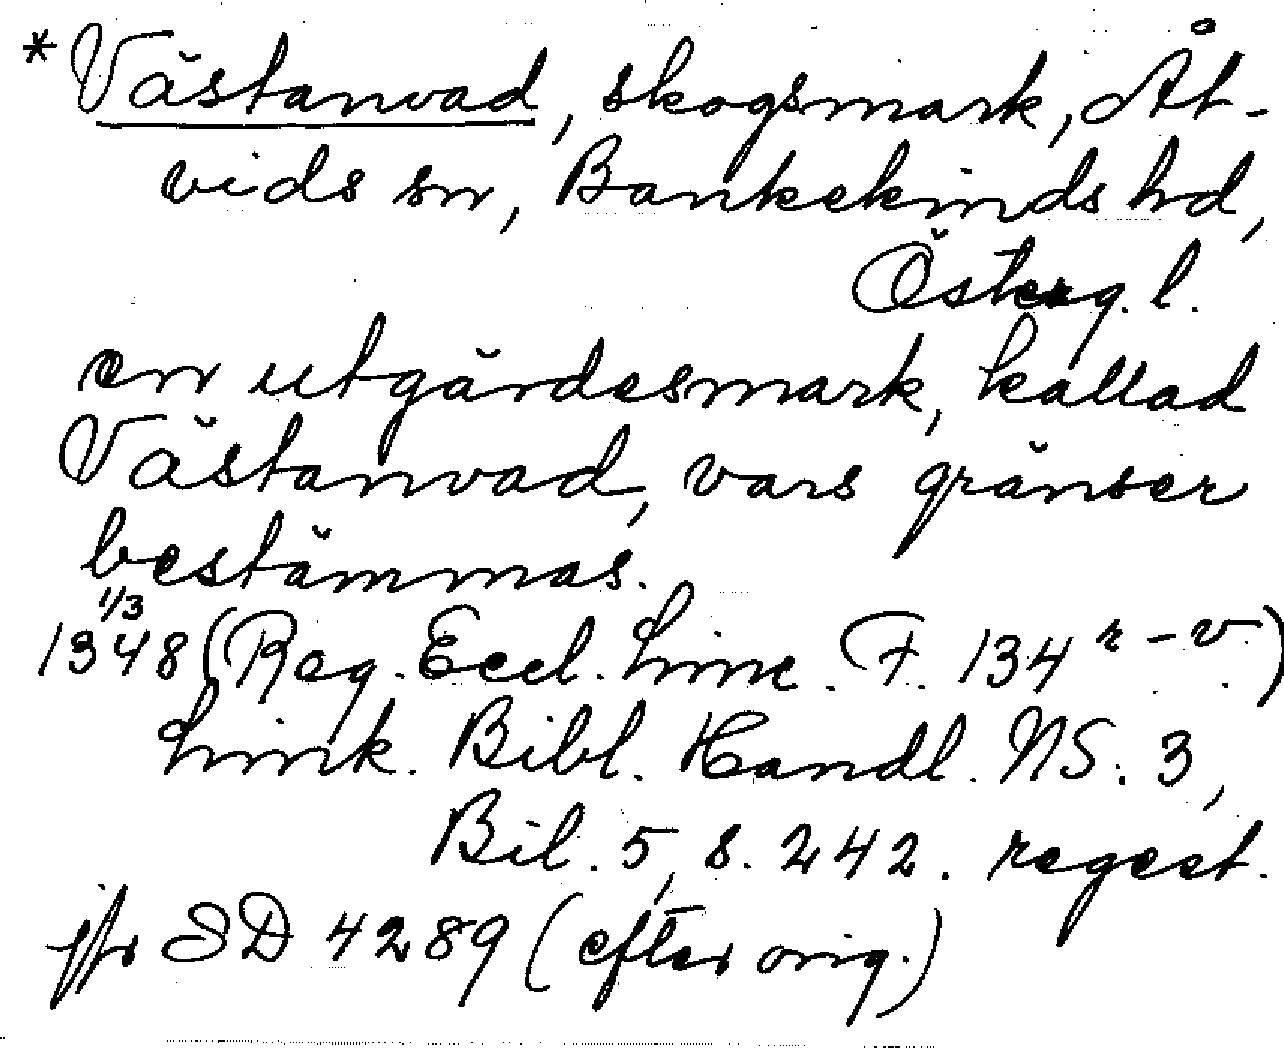 * Västanvad, skogsmark, Åt-
vids sn, Bankekinds hd,
Österg. l.
en utgärdesmark, kallad
Västanvad, vars gränser
bestämmas.
1348 1/3 (Reg. Eccl. Linc. F. 134 r - v.)
Link. Bibl. Handl. NS. 3,
Bil. 5, s. 242. regest.
jfr SD 4289 (efter orig.)